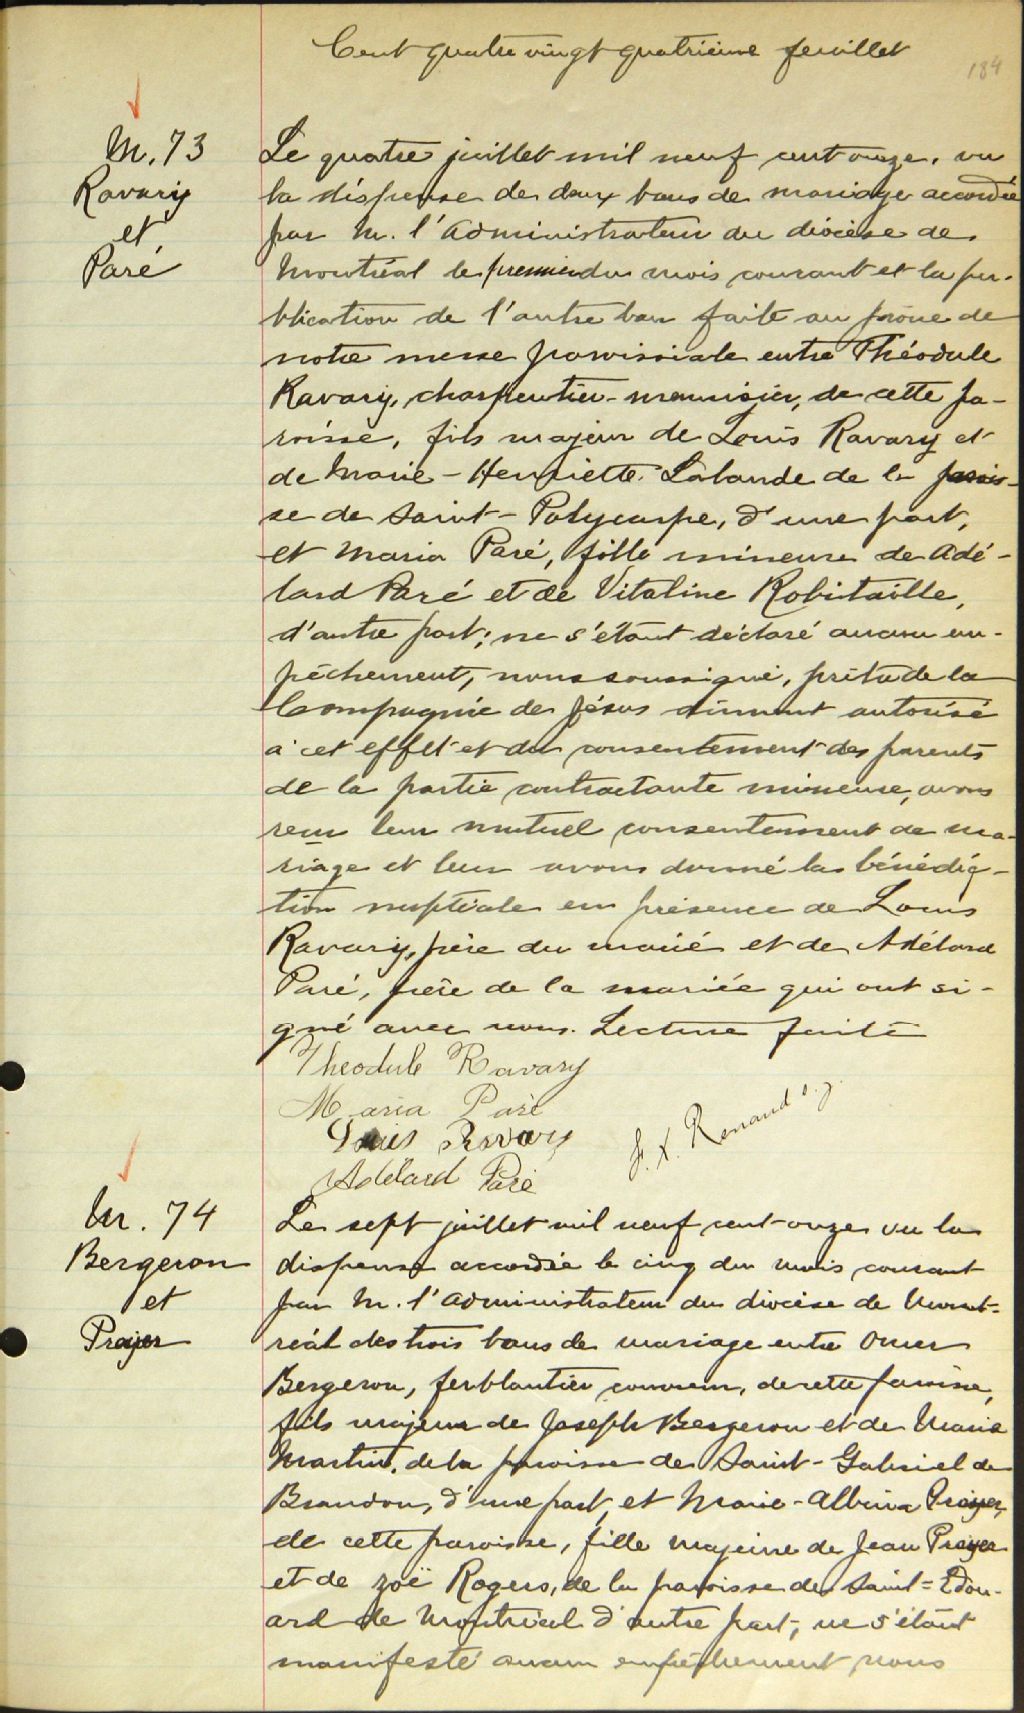 Cent quatre vingt quatrième feuillet
184
M. 73
Ravary
et
Paré
Le quatre juillet mil neuf cent onze, vu
la dispense de deux bans de mariage accordée
par M. l'Administrateur du diocèse de
Montréal le premier du mois courant et la pu-
blication de l'autre ban faite au prône de
notre messe paroissiale entre Théodule
Ravary, charpentier-menuisier, de cette pa-
roisse, fils majeur de Louis Ravary et
de Marie-Henriette Lalande de la parois-
se de Saint-Polycarpe, d'une part,
et Maria Paré, fille mineure de Adé-
lard Paré et de Vitaline Robitaille,
d'autre part; ne s'étant déclaré aucun em-
pêchement, nous soussigné, prêtre de la
Compagnie de Jésus dûment autorisé
à cet effet et du consentement des parents
de la partie contractante mineure, avons
reçu leur mutuel consentement de ma-
riage et leur avons donné la bénédic-
tion nuptiale en présence de Louis
Ravary, père du marié et de Adélard
Paré, père de la mariée qui ont si-
gné avec nous. Lecture faite
Theodule Ravary
Maria Paré
Louis Ravary
Adélard Paré
F. X. Renaud s.j.
M. 74
Bergeron
et
Proyer
Le sept juillet mil neuf cent onze vu la
dispense accordée le cinq du mois courant
par M. l'Administrateur du diocèse de Mont-
réal des trois bans de mariage entre Omer
Bergeron, ferblantier couvreur, de cette paroisse,
fils majeur de Joseph Bergeron et de Marie
Martin, de la paroisse de Saint-Gabriel de
Brandon, d'une part, et Marie-Albina Proyer,
de cette paroisse, fille majeure de Jean Proyer
et de Zoë Rogers, de la paroisse de Saint-Edou-
ard de Montréal d'autre part; ne s'étant
manifesté aucun empêchement nous